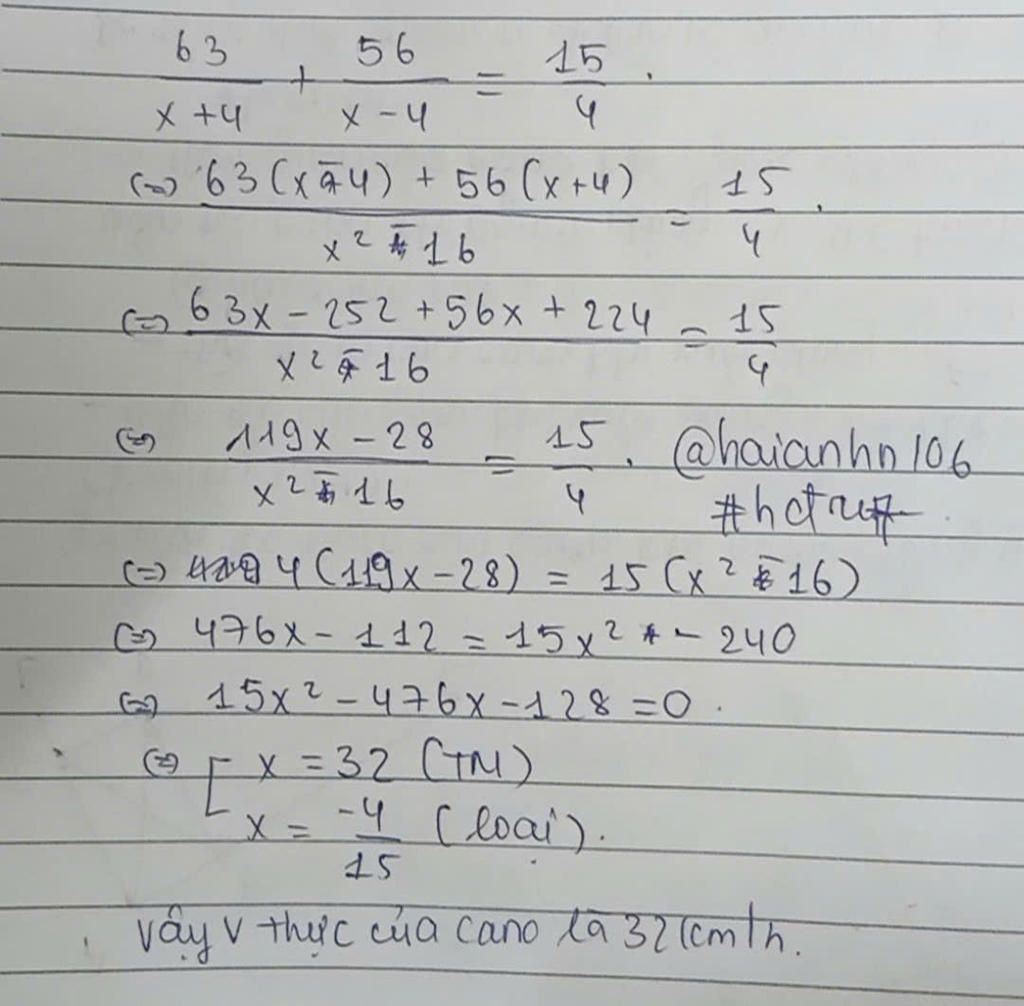 63/(x+4) + 56/(x-4) = 15/4.
(=) (63(x-4) + 56(x+4))/(x² - 16) = 15/4.
(=) (63x - 252 + 56x + 224)/(x² - 16) = 15/4
(=) (119x - 28)/(x² - 16) = 15/4. @haianhn106
(=) 4(119x - 28) = 15(x² - 16)
(=) 476x - 112 = 15x² - 240
(=) 15x² - 476x - 128 = 0.
(=) [ x = 32 (TM)
x = -4/15 (loại).
Vậy v thực của cano là 32 km/h.